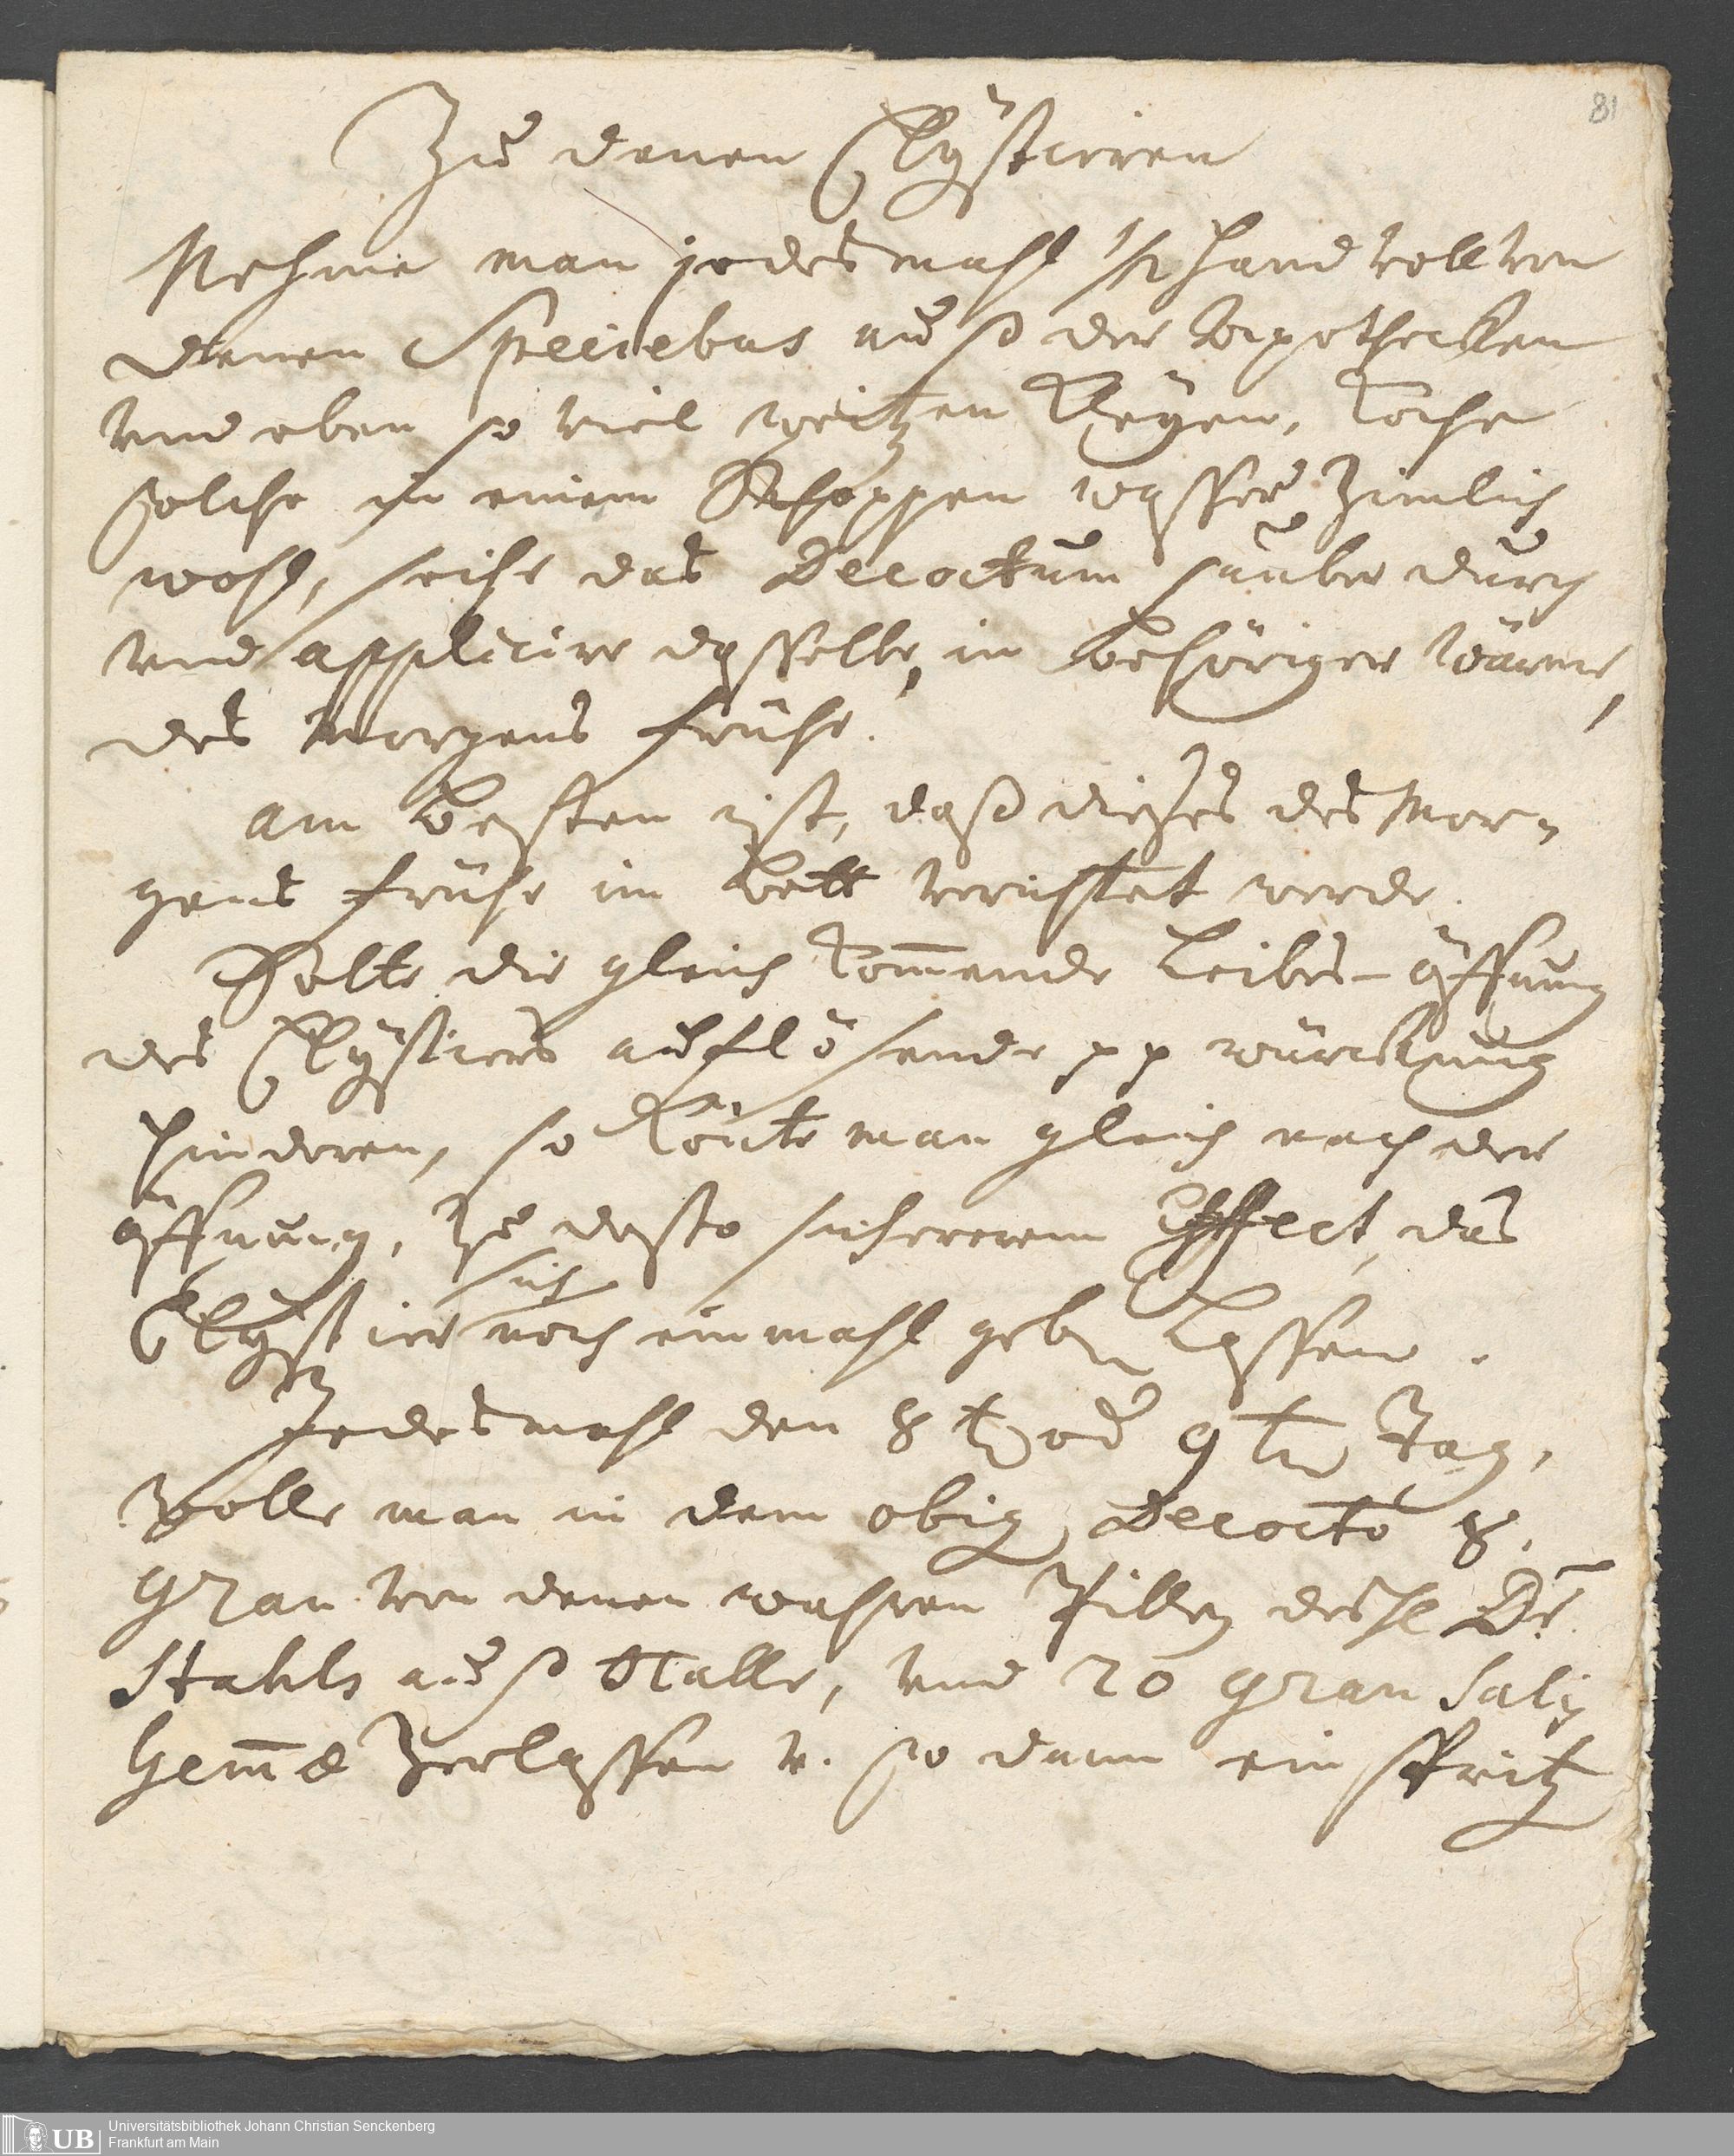 81
Zu denen Clÿstieren
Nehme man jedesmahl 1/2 Hand voll von
denen Speciebus auß der Apothecken
und eben so viel weitzen Kleÿen, Koche
solche in einem Schoppen wasser zimlich
wohl, seihe das Decoctum sauber durch
und applicire dasselbe, in behöriger wärme,
des Morgens frühe.
am besten ist, daß dieses des Mor-
gens frühe im bett verrichtet werde.
Solte die gleich kom̅ende Leibes-öffnung
des Clÿstiers auflösende pp würckung
hinderen, so könte man gleich nach der
öffnung, zu desto sichererem Effect, das
Clÿstier sich noch einmahl geben Lassen.
Jedesmahl den 8ten od 9ten Tag,
wolle man in dem obigen Decocto 8.
gran von denen wahren Pillen des H Dr.
Stahls auß Halle, und 20 gran Salis
Gem̅æ zerlassen u. so dann einspritzen
Universitätsbibliothek Johann Christian Senckenberg
Frankfurt am Main
UB